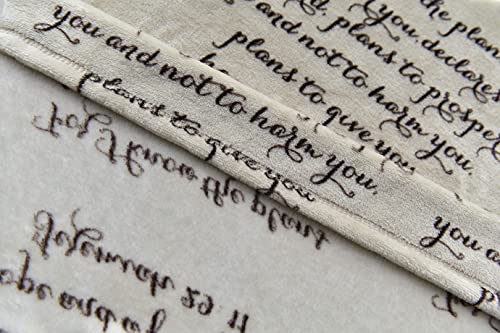 the plan
you, declares
d, plans to prospe
and not to harm you,
plans to give you
you and not to harm you,
plans to give you
you an
For I know the plans
Jeremiah 29:11
ope and a f